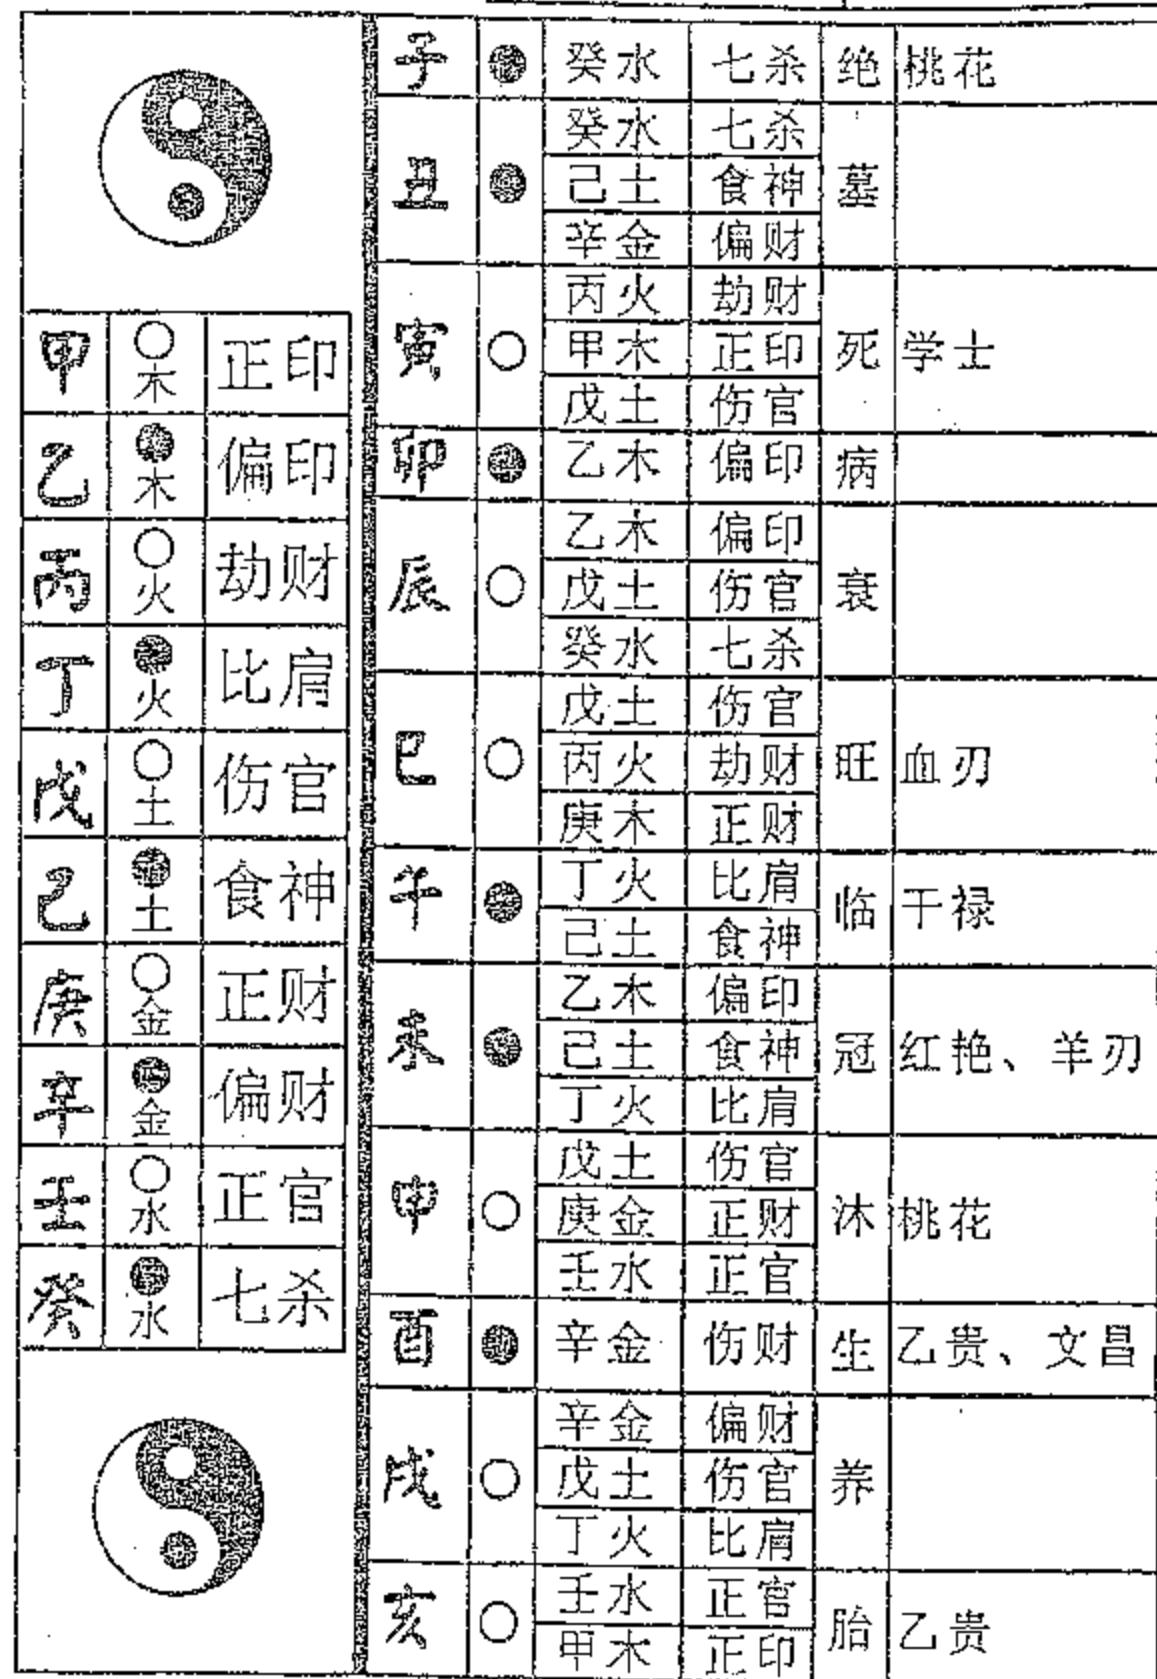 甲 木 正印
乙 木 偏印
丙 火 劫财
丁 火 比肩
戊 土 伤官
己 土 食神
庚 金 正财
辛 金 偏财
壬 水 正官
癸 水 七杀
子 癸水 七杀 绝 桃花
丑 癸水 七杀 墓
己土 食神
辛金 偏财
寅 丙火 劫财 死 学士
甲木 正印
戊土 伤官
卯 乙木 偏印 病
辰 乙木 偏印 衰
戊土 伤官
癸水 七杀
巳 戊土 伤官 旺 血刃
丙火 劫财
庚木 正财
午 丁火 比肩 临 干禄
己土 食神
未 乙木 偏印 冠 红艳、羊刃
己土 食神
丁火 比肩
申 戊土 伤官 沐 桃花
庚金 正财
壬水 正官
酉 辛金 伤财 生 乙贵、文昌
戌 辛金 偏财 养
戊土 伤官
丁火 比肩
亥 壬水 正官 胎 乙贵
甲木 正印